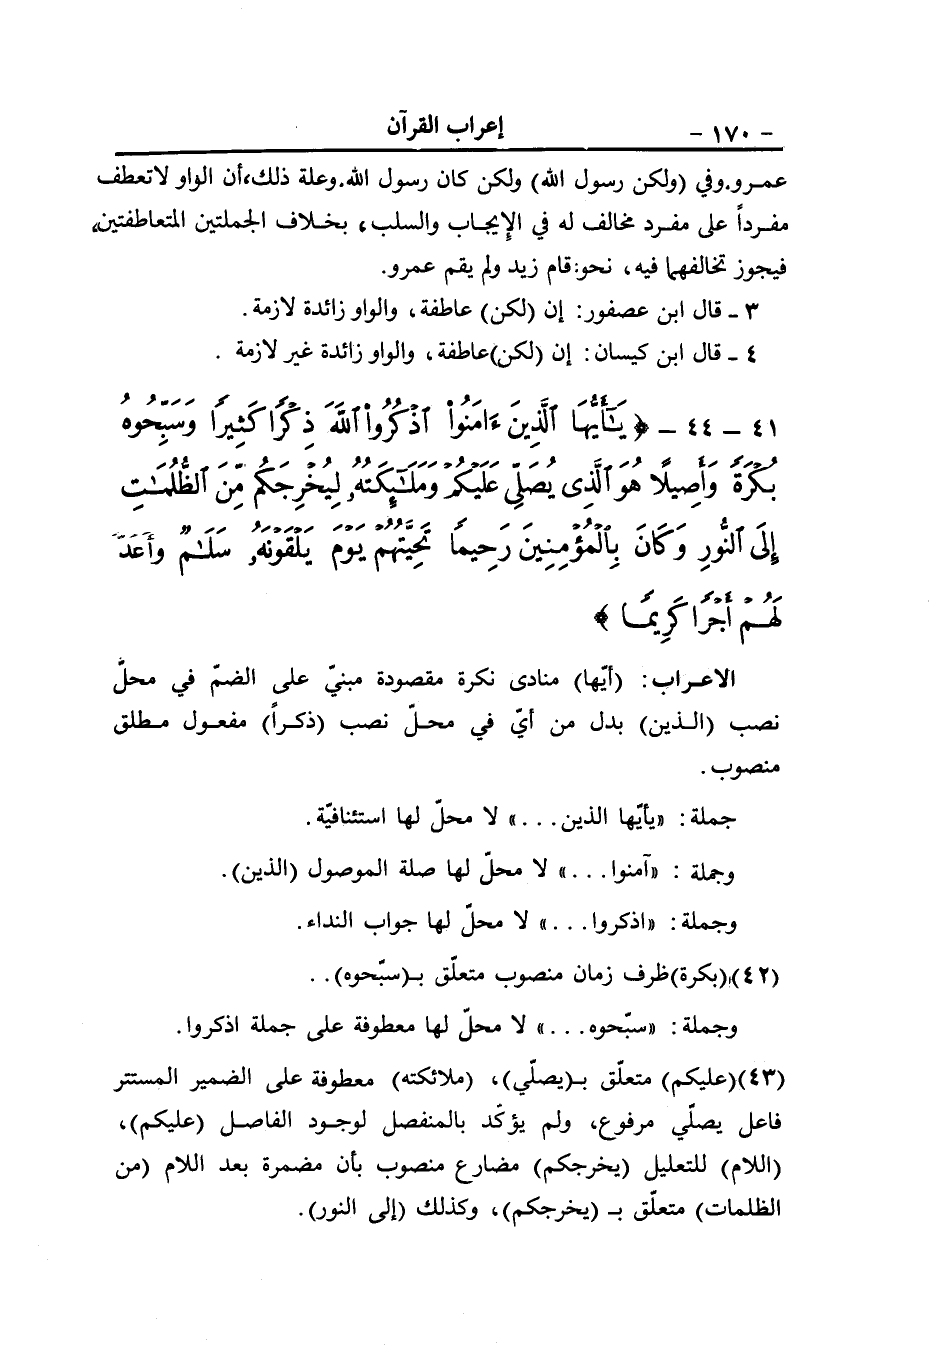 - ١٧٠ - إعراب القرآن
عمـرو.وفي (ولكن رسول الله) ولكن كان رسول الله.وعلة ذلك،أن الواو لاتعطف
مفـرداً على مفـرد مخالف له في الإيجـاب والسلب، بخـلاف الجملتين المتعاطفتين،
فيجوز تخالفهما فيه، نحو:قام زيد ولم يقم عمرو.
٣ ـ قال ابن عصفور: إن (لكن) عاطفة، والواو زائدة لازمة.
٤ ـ قال ابن كيسان: إن (لكن)عاطفة، والواو زائدة غير لازمة .
٤١ - ٤٤ - ﴿ يَـٰٓأَيُّهَا ٱلَّذِينَ ءَامَنُوا۟ ٱذْكُرُوا۟ ٱللَّهَ ذِكْرًا كَثِيرًا وَسَبِّحُوهُ
بُكْرَةً وَأَصِيلًا هُوَ ٱلَّذِى يُصَلِّى عَلَيْكُمْ وَمَلَـٰٓئِكَتُهُۥ لِيُخْرِجَكُم مِّنَ ٱلظُّلُمَـٰتِ
إِلَى ٱلنُّورِ وَكَانَ بِٱلْمُؤْمِنِينَ رَحِيمًا تَحِيَّتُهُمْ يَوْمَ يَلْقَوْنَهُۥ سَلَـٰمٌ وَأَعَدَّ
لَهُمْ أَجْرًا كَرِيمًا ﴾
الاعـراب: (أيّها) منادى نكرة مقصودة مبنيّ على الضمّ في محلّ
نصب (الـذين) بدل من أيّ في محـلّ نصب (ذكـراً) مفعـول مـطلق
منصوب.
جملة: «يأيّها الذين...» لا محلّ لها استئنافيّة.
وجملة : «آمنوا...» لا محلّ لها صلة الموصول (الذين).
وجملة: «اذكروا...» لا محلّ لها جواب النداء.
(٤٢)(بكرة)ظرف زمان منصوب متعلّق بـ(سبّحوه)..
وجملة: «سبّحوه...» لا محلّ لها معطوفة على جملة اذكروا.
(٤٣)(عليكم) متعلّق بـ(يصلّي)، (ملائكته) معطوفة على الضمير المستتر
فاعل يصلّي مرفوع، ولم يؤكّد بالمنفصل لوجـود الفاصـل (عليكم)،
(اللام) للتعليل (يخرجكم) مضارع منصوب بأن مضمرة بعد اللام (من
الظلمات) متعلّق بـ (يخرجكم)، وكذلك (إلى النور).